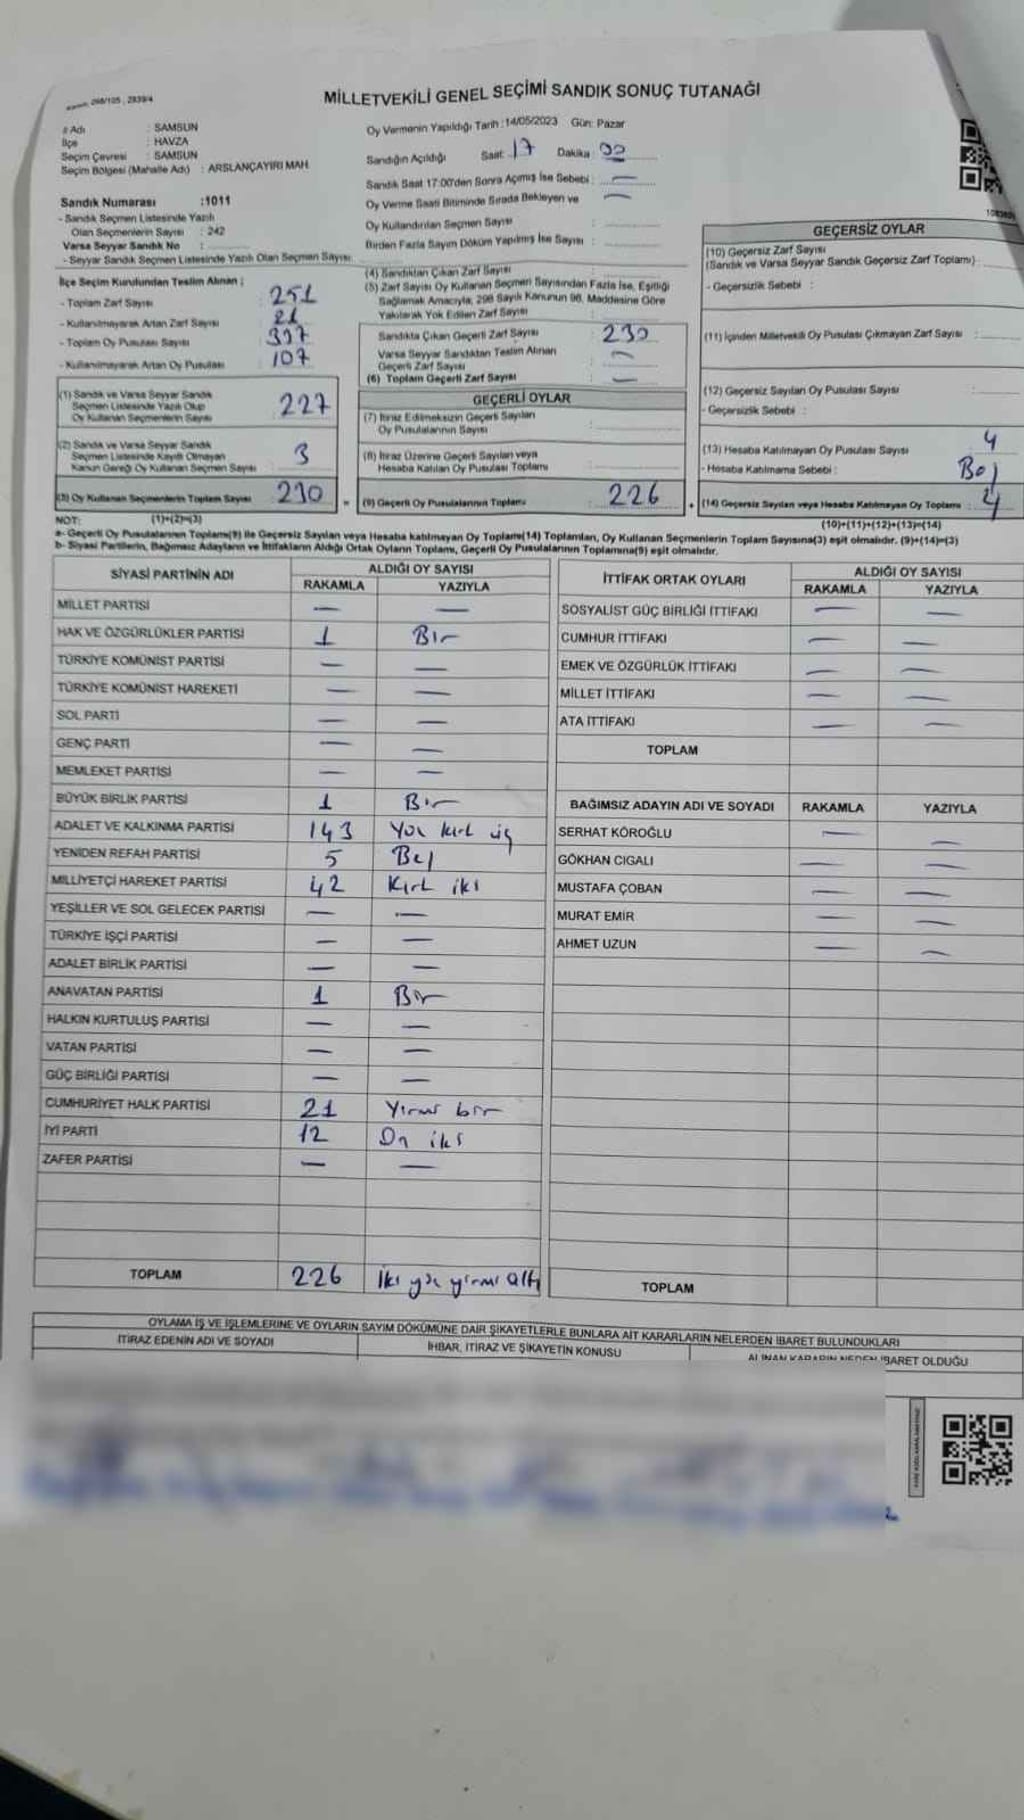 MİLLETVEKİLİ GENEL SEÇİMİ SANDIK SONUÇ TUTANAĞI
İl Adı : SAMSUN
İlçe : HAVZA
Seçim Çevresi : SAMSUN
Seçim Bölgesi (Mahalle Adı) : ARSLANÇAYIRI MAH.
Oy Vermenin Yapıldığı Tarih :14/05/2023 Gün: Pazar
Sandığın Açıldığı Saat: 17 Dakika: 00
Sandık Saat 17:00'den Sonra Açılmış İse Sebebi : —
Oy Verme Saati Bitiminde Sırada Bekleyen ve —
Oy Kullandırılan Seçmen Sayısı :
Birden Fazla Sayım Döküm Yapılmış İse Sayısı :
Sandık Numarası :1011
- Sandık Seçmen Listesinde Yazılı
Olan Seçmenlerin Sayısı : 242
Varsa Seyyar Sandık No :
- Seyyar Sandık Seçmen Listesinde Yazılı Olan Seçmen Sayısı:
İlçe Seçim Kurulundan Teslim Alınan ;
- Toplam Zarf Sayısı : 251
- Kullanılmayarak Artan Zarf Sayısı : 21
- Toplam Oy Pusulası Sayısı : 337
- Kullanılmayarak Artan Oy Pusulası : 107
(1) Sandık ve Varsa Seyyar Sandık
Seçmen Listesinde Yazılı Olup
Oy Kullanan Seçmenlerin Sayısı 227
(2) Sandık ve Varsa Seyyar Sandık
Seçmen Listesinde Kayıtlı Olmayan
Kanun Gereği Oy Kullanan Seçmen Sayısı 3
(3) Oy Kullanan Seçmenlerin Toplam Sayısı 230
(4) Sandıktan Çıkan Zarf Sayısı :
(5) Zarf Sayısı Oy Kullanan Seçmen Sayısından Fazla İse, Eşitliği
Sağlamak Amacıyla, 298 Sayılı Kanunun 98. Maddesine Göre
Yakılarak Yok Edilen Zarf Sayısı :
Sandıkta Çıkan Geçerli Zarf Sayısı : 230
Varsa Seyyar Sandıktan Teslim Alınan
Geçerli Zarf Sayısı : —
(6) Toplam Geçerli Zarf Sayısı : —
GEÇERLİ OYLAR
(7) İtiraz Edilmeksizin Geçerli Sayılan
Oy Pusulalarının Sayısı :
(8) İtiraz Üzerine Geçerli Sayılan veya
Hesaba Katılan Oy Pusulası Toplamı :
= (9) Geçerli Oy Pusulalarının Toplamı : 226
GEÇERSİZ OYLAR
(10) Geçersiz Zarf Sayısı
(Sandık ve Varsa Seyyar Sandık Geçersiz Zarf Toplamı) :
- Geçersizlik Sebebi :
(11) İçinden Milletvekili Oy Pusulası Çıkmayan Zarf Sayısı :
(12) Geçersiz Sayılan Oy Pusulası Sayısı :
- Geçersizlik Sebebi :
(13) Hesaba Katılmayan Oy Pusulası Sayısı : 4
- Hesaba Katılmama Sebebi : Boş
+ (14) Geçersiz Sayılan veya Hesaba Katılmayan Oy Toplamı : 4
NOT: (1)+(2)=(3) (10)+(11)+(12)+(13)=(14)
a- Geçerli Oy Pusulalarının Toplamı(9) ile Geçersiz Sayılan veya Hesaba katılmayan Oy Toplamı(14) Toplamları, Oy Kullanan Seçmenlerin Toplam Sayısına(3) eşit olmalıdır. (9)+(14)=(3)
b- Siyasi Partilerin, Bağımsız Adayların ve İttifakların Aldığı Ortak Oyların Toplamı, Geçerli Oy Pusulalarının Toplamına(9) eşit olmalıdır.
SİYASİ PARTİNİN ADI ALDIĞI OY SAYISI
RAKAMLA YAZIYLA
MİLLET PARTİSİ — —
HAK VE ÖZGÜRLÜKLER PARTİSİ 1 Bir
TÜRKİYE KOMÜNİST PARTİSİ — —
TÜRKİYE KOMÜNİST HAREKETİ — —
SOL PARTİ — —
GENÇ PARTİ — —
MEMLEKET PARTİSİ — —
BÜYÜK BİRLİK PARTİSİ 1 Bir
ADALET VE KALKINMA PARTİSİ 143 Yüz kırk üç
YENİDEN REFAH PARTİSİ 5 Beş
MİLLİYETÇİ HAREKET PARTİSİ 42 Kırk iki
YEŞİLLER VE SOL GELECEK PARTİSİ — —
TÜRKİYE İŞÇİ PARTİSİ — —
ADALET BİRLİK PARTİSİ — —
ANAVATAN PARTİSİ 1 Bir
HALKIN KURTULUŞ PARTİSİ — —
VATAN PARTİSİ — —
GÜÇ BİRLİĞİ PARTİSİ — —
CUMHURİYET HALK PARTİSİ 21 Yirmi bir
İYİ PARTİ 12 On iki
ZAFER PARTİSİ — —
TOPLAM 226 İki yüz yirmi altı
İTTİFAK ORTAK OYLARI ALDIĞI OY SAYISI
RAKAMLA YAZIYLA
SOSYALİST GÜÇ BİRLİĞİ İTTİFAKI — —
CUMHUR İTTİFAKI — —
EMEK VE ÖZGÜRLÜK İTTİFAKI — —
MİLLET İTTİFAKI — —
ATA İTTİFAKI — —
TOPLAM
BAĞIMSIZ ADAYIN ADI VE SOYADI RAKAMLA YAZIYLA
SERHAT KÖROĞLU — —
GÖKHAN CIGALI — —
MUSTAFA ÇOBAN — —
MURAT EMİR — —
AHMET UZUN — —
TOPLAM
OYLAMA İŞ VE İŞLEMLERİNE VE OYLARIN SAYIM DÖKÜMÜNE DAİR ŞİKAYETLERLE BUNLARA AİT KARARLARIN NELERDEN İBARET BULUNDUKLARI
İTİRAZ EDENİN ADI VE SOYADI
İHBAR, İTİRAZ VE ŞİKAYETİN KONUSU
ALINAN KARARIN NEDEN İBARET OLDUĞU